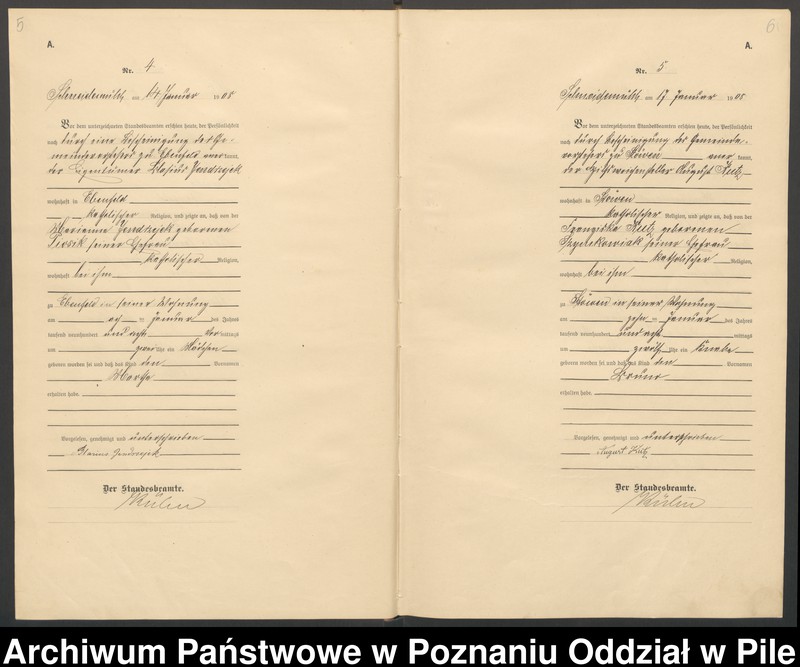 5
A.
Nr. 4
Schneidemühl am 14 Januar 1908
Vor dem unterzeichneten Standesbeamten erschien heute, der Persönlichkeit
nach durch eine Bescheinigung des Ge-
meindevorstehers zu Ebenfeld anerkannt,
der Eigentümer
wohnhaft in Ebenfeld
katholischer Religion, und zeigte an, daß von der
Marianna geborenen
seiner Ehefrau
katholischer Religion,
wohnhaft bei ihm
zu Ebenfeld in seiner Wohnung
am Januar des Jahres
tausend neunhundert und acht mittags
um Uhr ein Mädchen
geboren worden sei und daß das Kind den Vornamen
Martha
erhalten habe
Vorgelesen, genehmigt und unterschrieben
Der Standesbeamte.
6
A.
Nr. 5
Schneidemühl am 17 Januar 1908
Vor dem unterzeichneten Standesbeamten erschien heute, der Persönlichkeit
nach durch Bescheinigung des Gemeinde-
vorstehers zu Stöwen anerkannt,
der Hilfsweichensteller August
wohnhaft in Stöwen
katholischer Religion, und zeigte an, daß von der
Franziska geborenen
seiner Ehefrau
katholischer Religion,
wohnhaft bei ihm
zu Stöwen in seiner Wohnung
am zehn Januar des Jahres
tausend neunhundert und acht mittags
um zwölf Uhr ein Knabe
geboren worden sei und daß das Kind den Vornamen
Bruno
erhalten habe
Vorgelesen, genehmigt und unterschrieben
August
Der Standesbeamte.
Archiwum Państwowe w Poznaniu Oddział w Pile